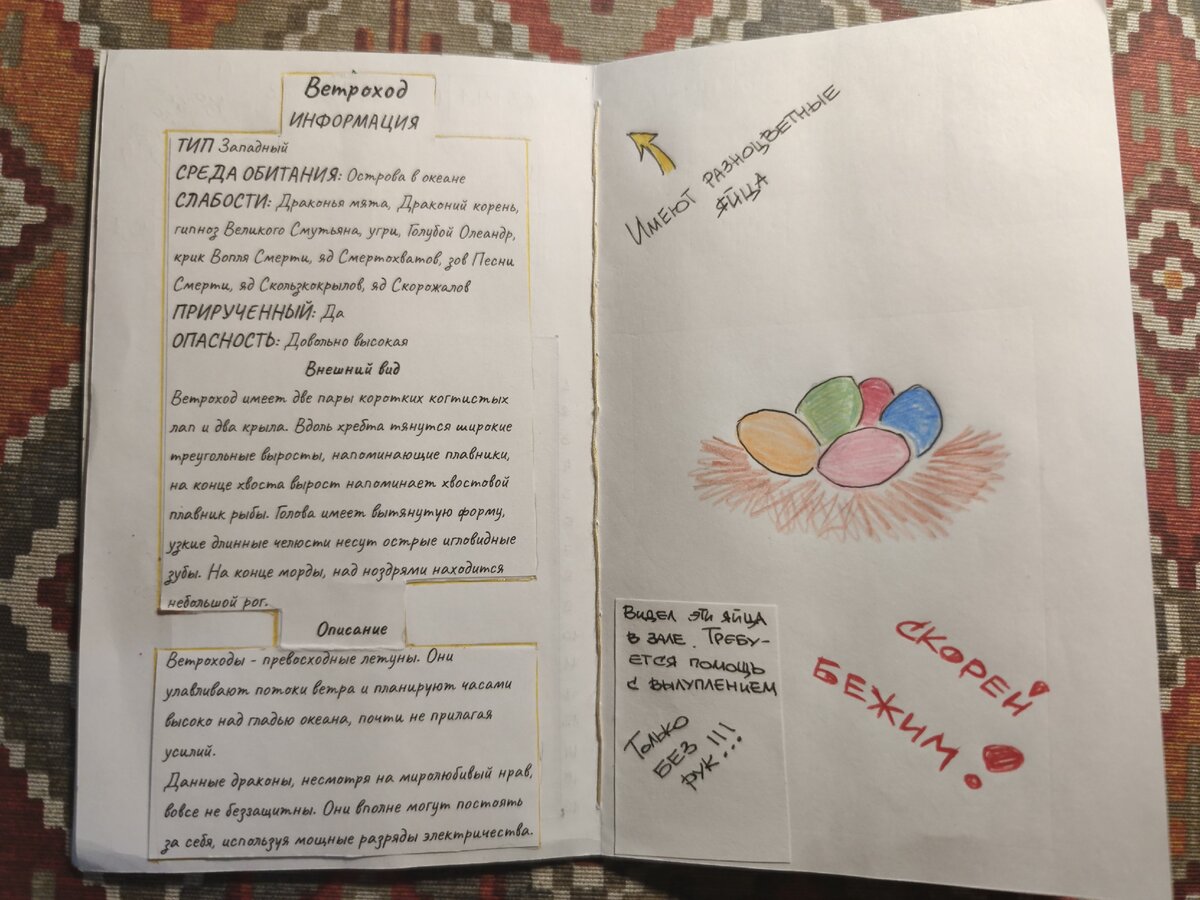 Ветроход
ИНФОРМАЦИЯ
ТИП Западный
СРЕДА ОБИТАНИЯ: Острова в океане
СЛАБОСТИ: Драконья мята, Драконий корень,
гипноз Великого Смутьяна, угри, Голубой Олеандр,
крик Вопля Смерти, яд Смертохватов, зов Песни
Смерти, яд Скользкокрылов, яд Скорожалов
ПРИРУЧЕННЫЙ: Да
ОПАСНОСТЬ: Довольно высокая
Внешний вид
Ветроход имеет две пары коротких когтистых
лап и два крыла. Вдоль хребта тянутся широкие
треугольные выросты, напоминающие плавники,
на конце хвоста вырост напоминает хвостовой
плавник рыбы. Голова имеет вытянутую форму,
узкие длинные челюсти несут острые игловидные
зубы. На конце морды, над ноздрями находится
небольшой рог.
Описание
Ветроходы - превосходные летуны. Они
улавливают потоки ветра и планируют часами
высоко над гладью океана, почти не прилагая
усилий.
Данные драконы, несмотря на миролюбивый нрав,
вовсе не беззащитны. Они вполне могут постоять
за себя, используя мощные разряды электричества.
Имеют разноцветные
яйца
Видел эти яйца
в зале. Требу-
ется помощь
с вылуплением
Только
без
рук!!!
СКОРЕЙ!
БЕЖИМ!